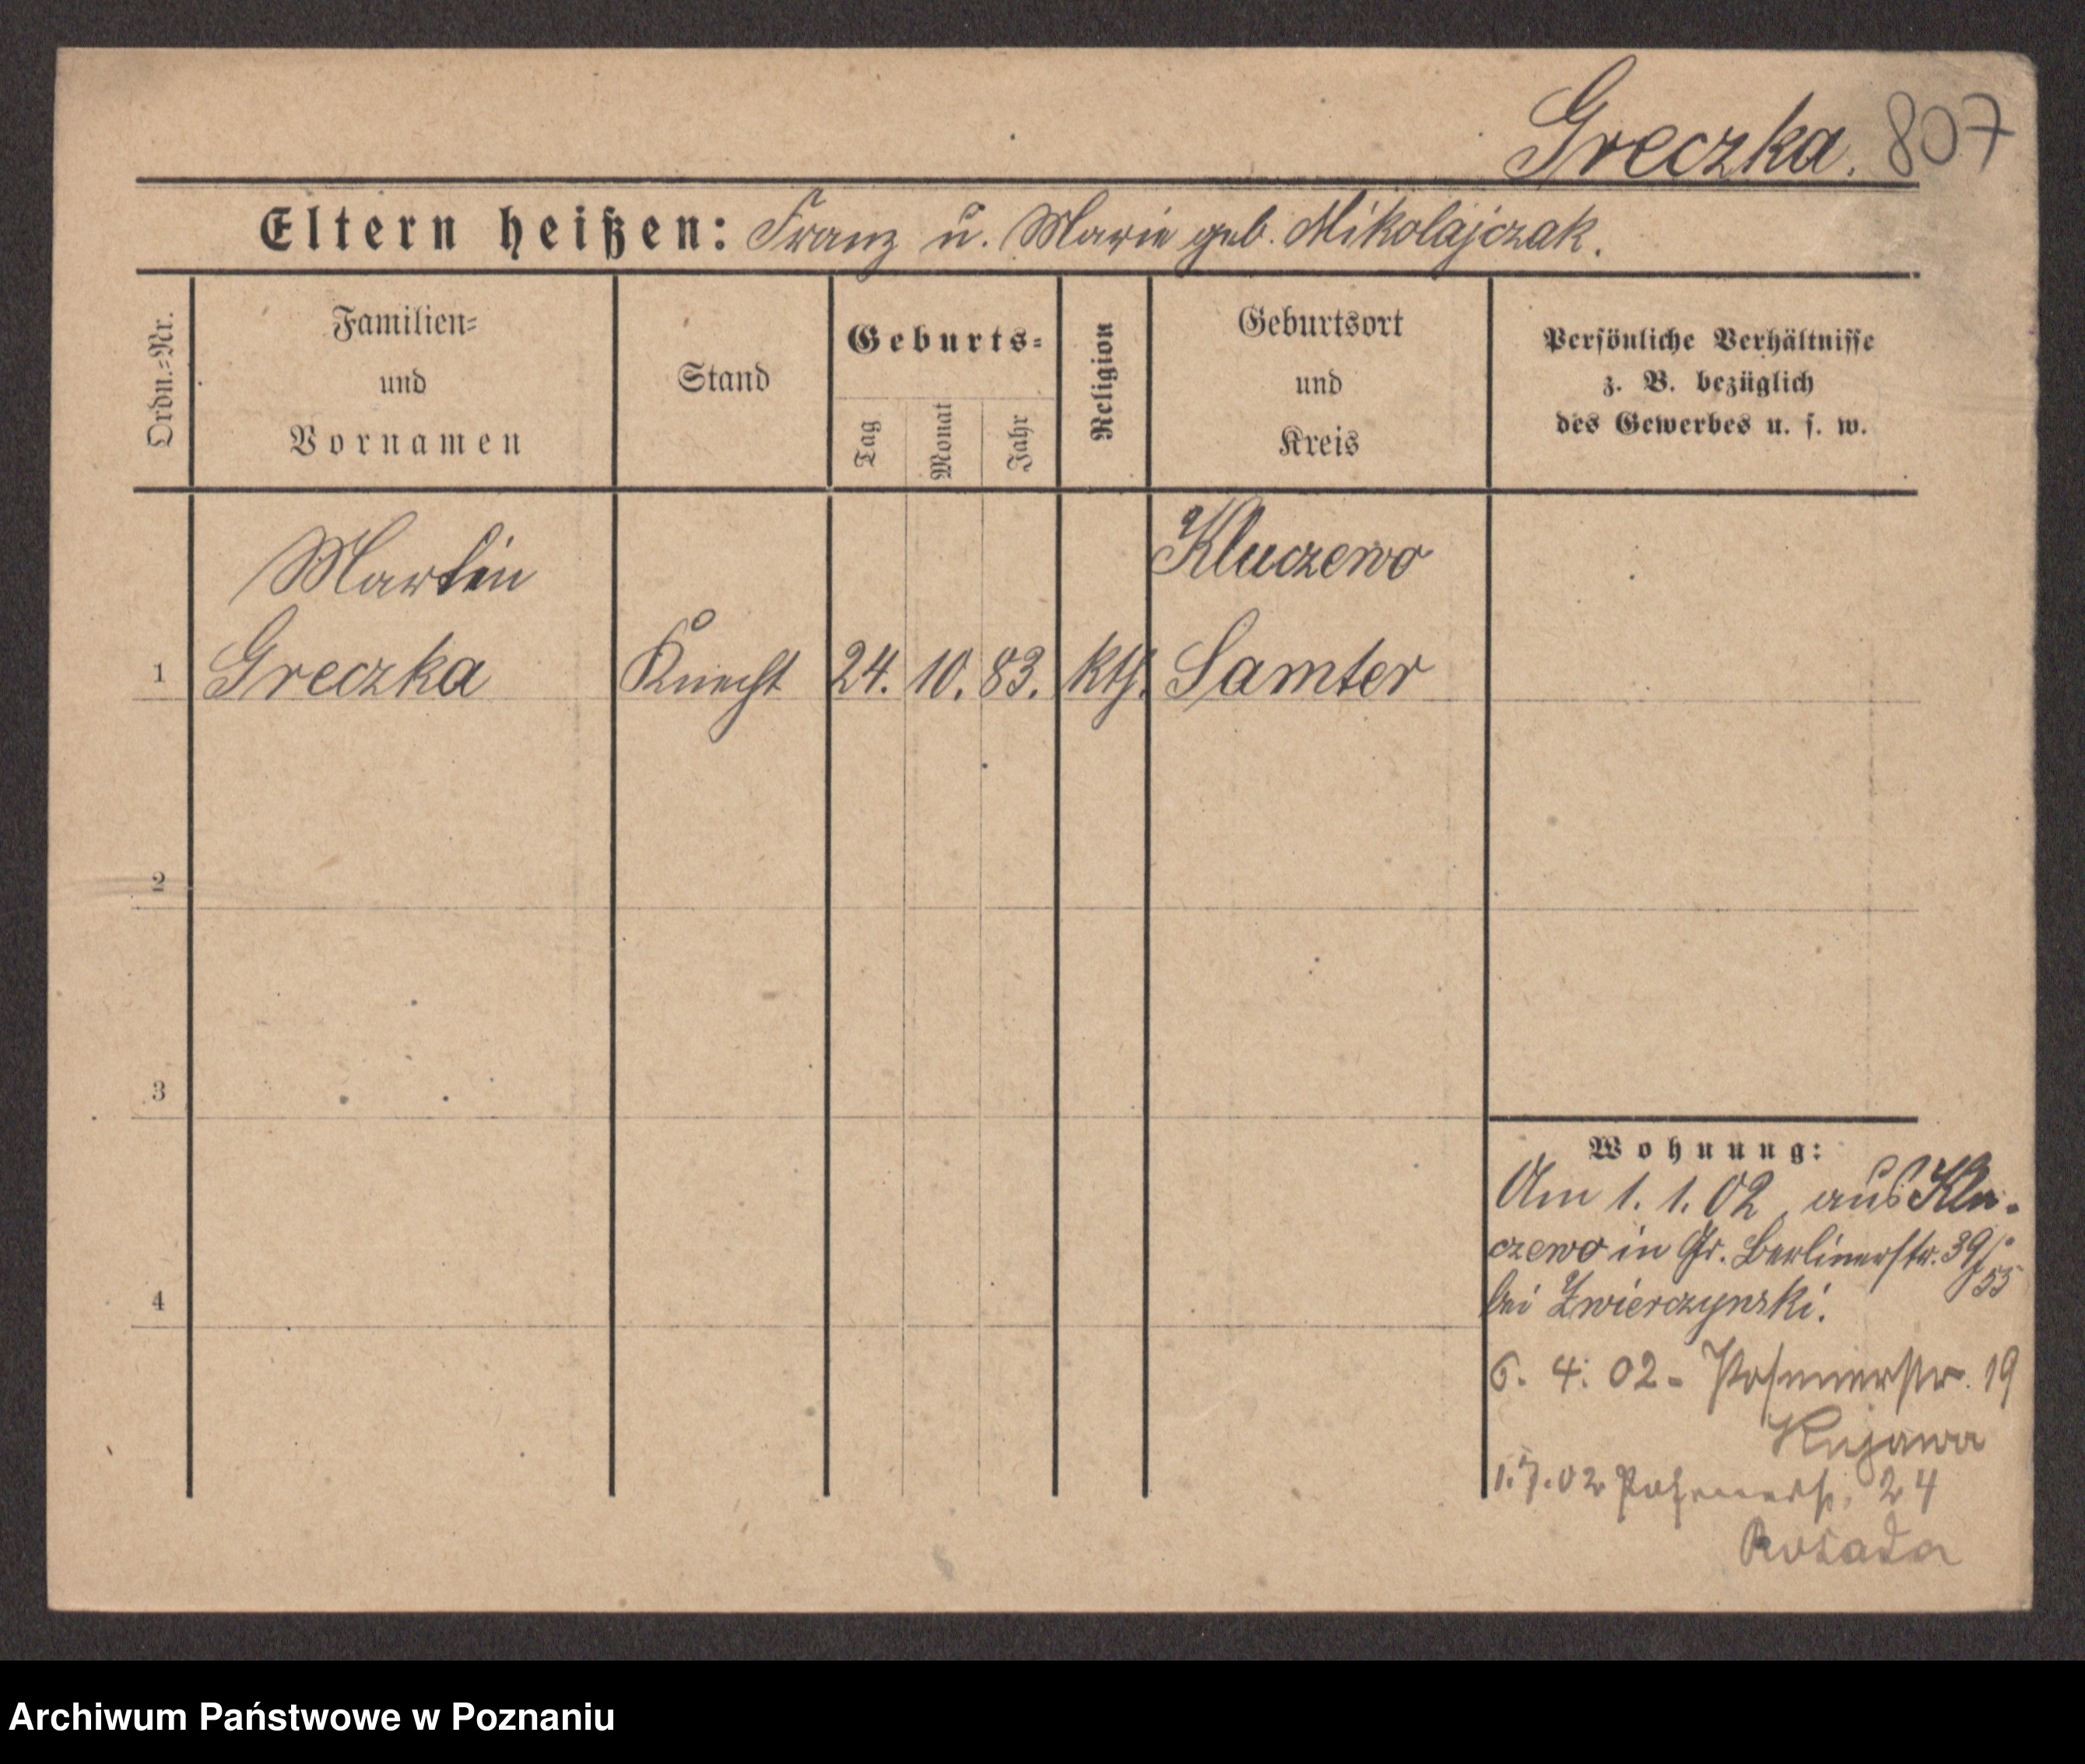 Greczka. 807
Eltern heißen: Franz u. Marie geb. Mikolajczak.
Ordn.=Nr.
Familien=
und
Vornamen
Stand
Geburts=
Tag
Monat
Jahr
Religion
Geburtsort
und
Kreis
Persönliche Verhältnisse
z. B. bezüglich
des Gewerbes u. s. w.
Martin Kluczewo
1 Greczka Knecht 24. 10. 83. kth. Samter
2
3
4
Wohnung:
Am 1.1.02 aus Klu-
czewo in Gr. Berlinerstr. 39/55
bei Zwierczynski.
6. 4. 02 - Posenerstr. 19
Kujawa
1.7.02 Posenerstr. 24
Archiwum Państwowe w Poznaniu